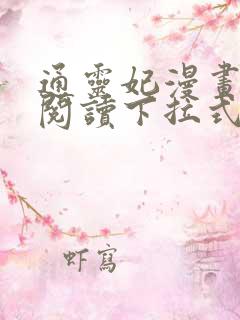 通靈妃漫畫
閱讀下拉式
虾寫